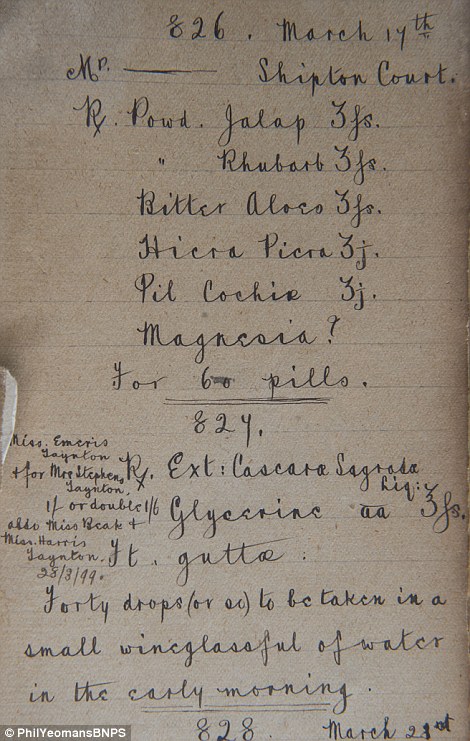 826. March 17th
Mr. —— Shipton Court.
℞. Powd. Jalap ʒfs.
" Rhubarb ʒfs.
Bitter Aloes ʒfs.
Hiera Picra ʒj.
Pil Cochiæ ʒj.
Magnesia?
For 60 pills.
827.
Miss. Emeris
Taynton
+ for Mrs Stephens
Taynton.
1/ or double 1/6
also Miss Beak +
Miss. Harris
Taynton.
28/3/99.
℞. Ext: Cascara Sagrada
Liq:
Glycerine aa ʒfs.
Ft. guttæ.
Forty drops (or so) to be taken in a
small wineglassful of water
in the early morning.
828. March 21st
© PhilYeomansBNPS